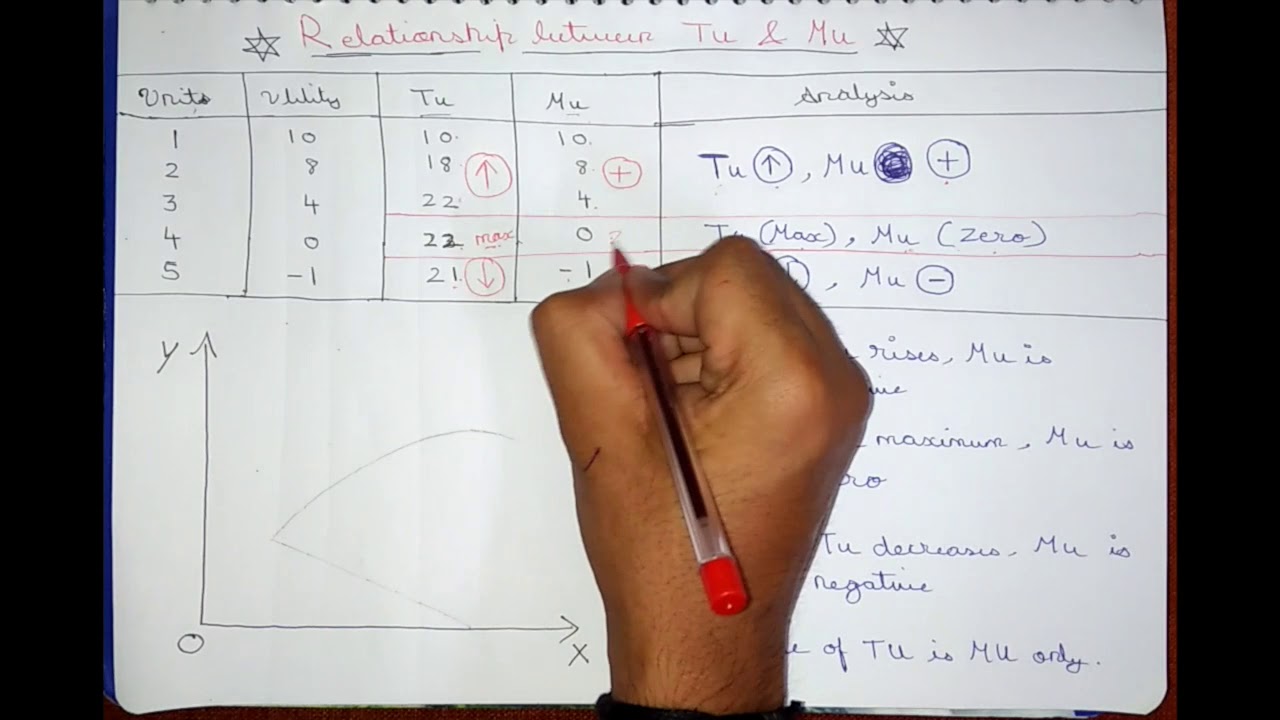 Relationship between Tu & Mu
Units Utility Tu Mu Analysis
1 10 10. 10.
2 8 18. ↑ 8. + Tu ↑, Mu +
3 4 22. 4.
4 0 22 max 0 Tu (Max), Mu (Zero)
5 -1 21. ↓ -1 ↓, Mu -
Y
rises, Mu is
maximum, Mu is
Tu decreases, Mu is
negative
O X
of TU is MU only.